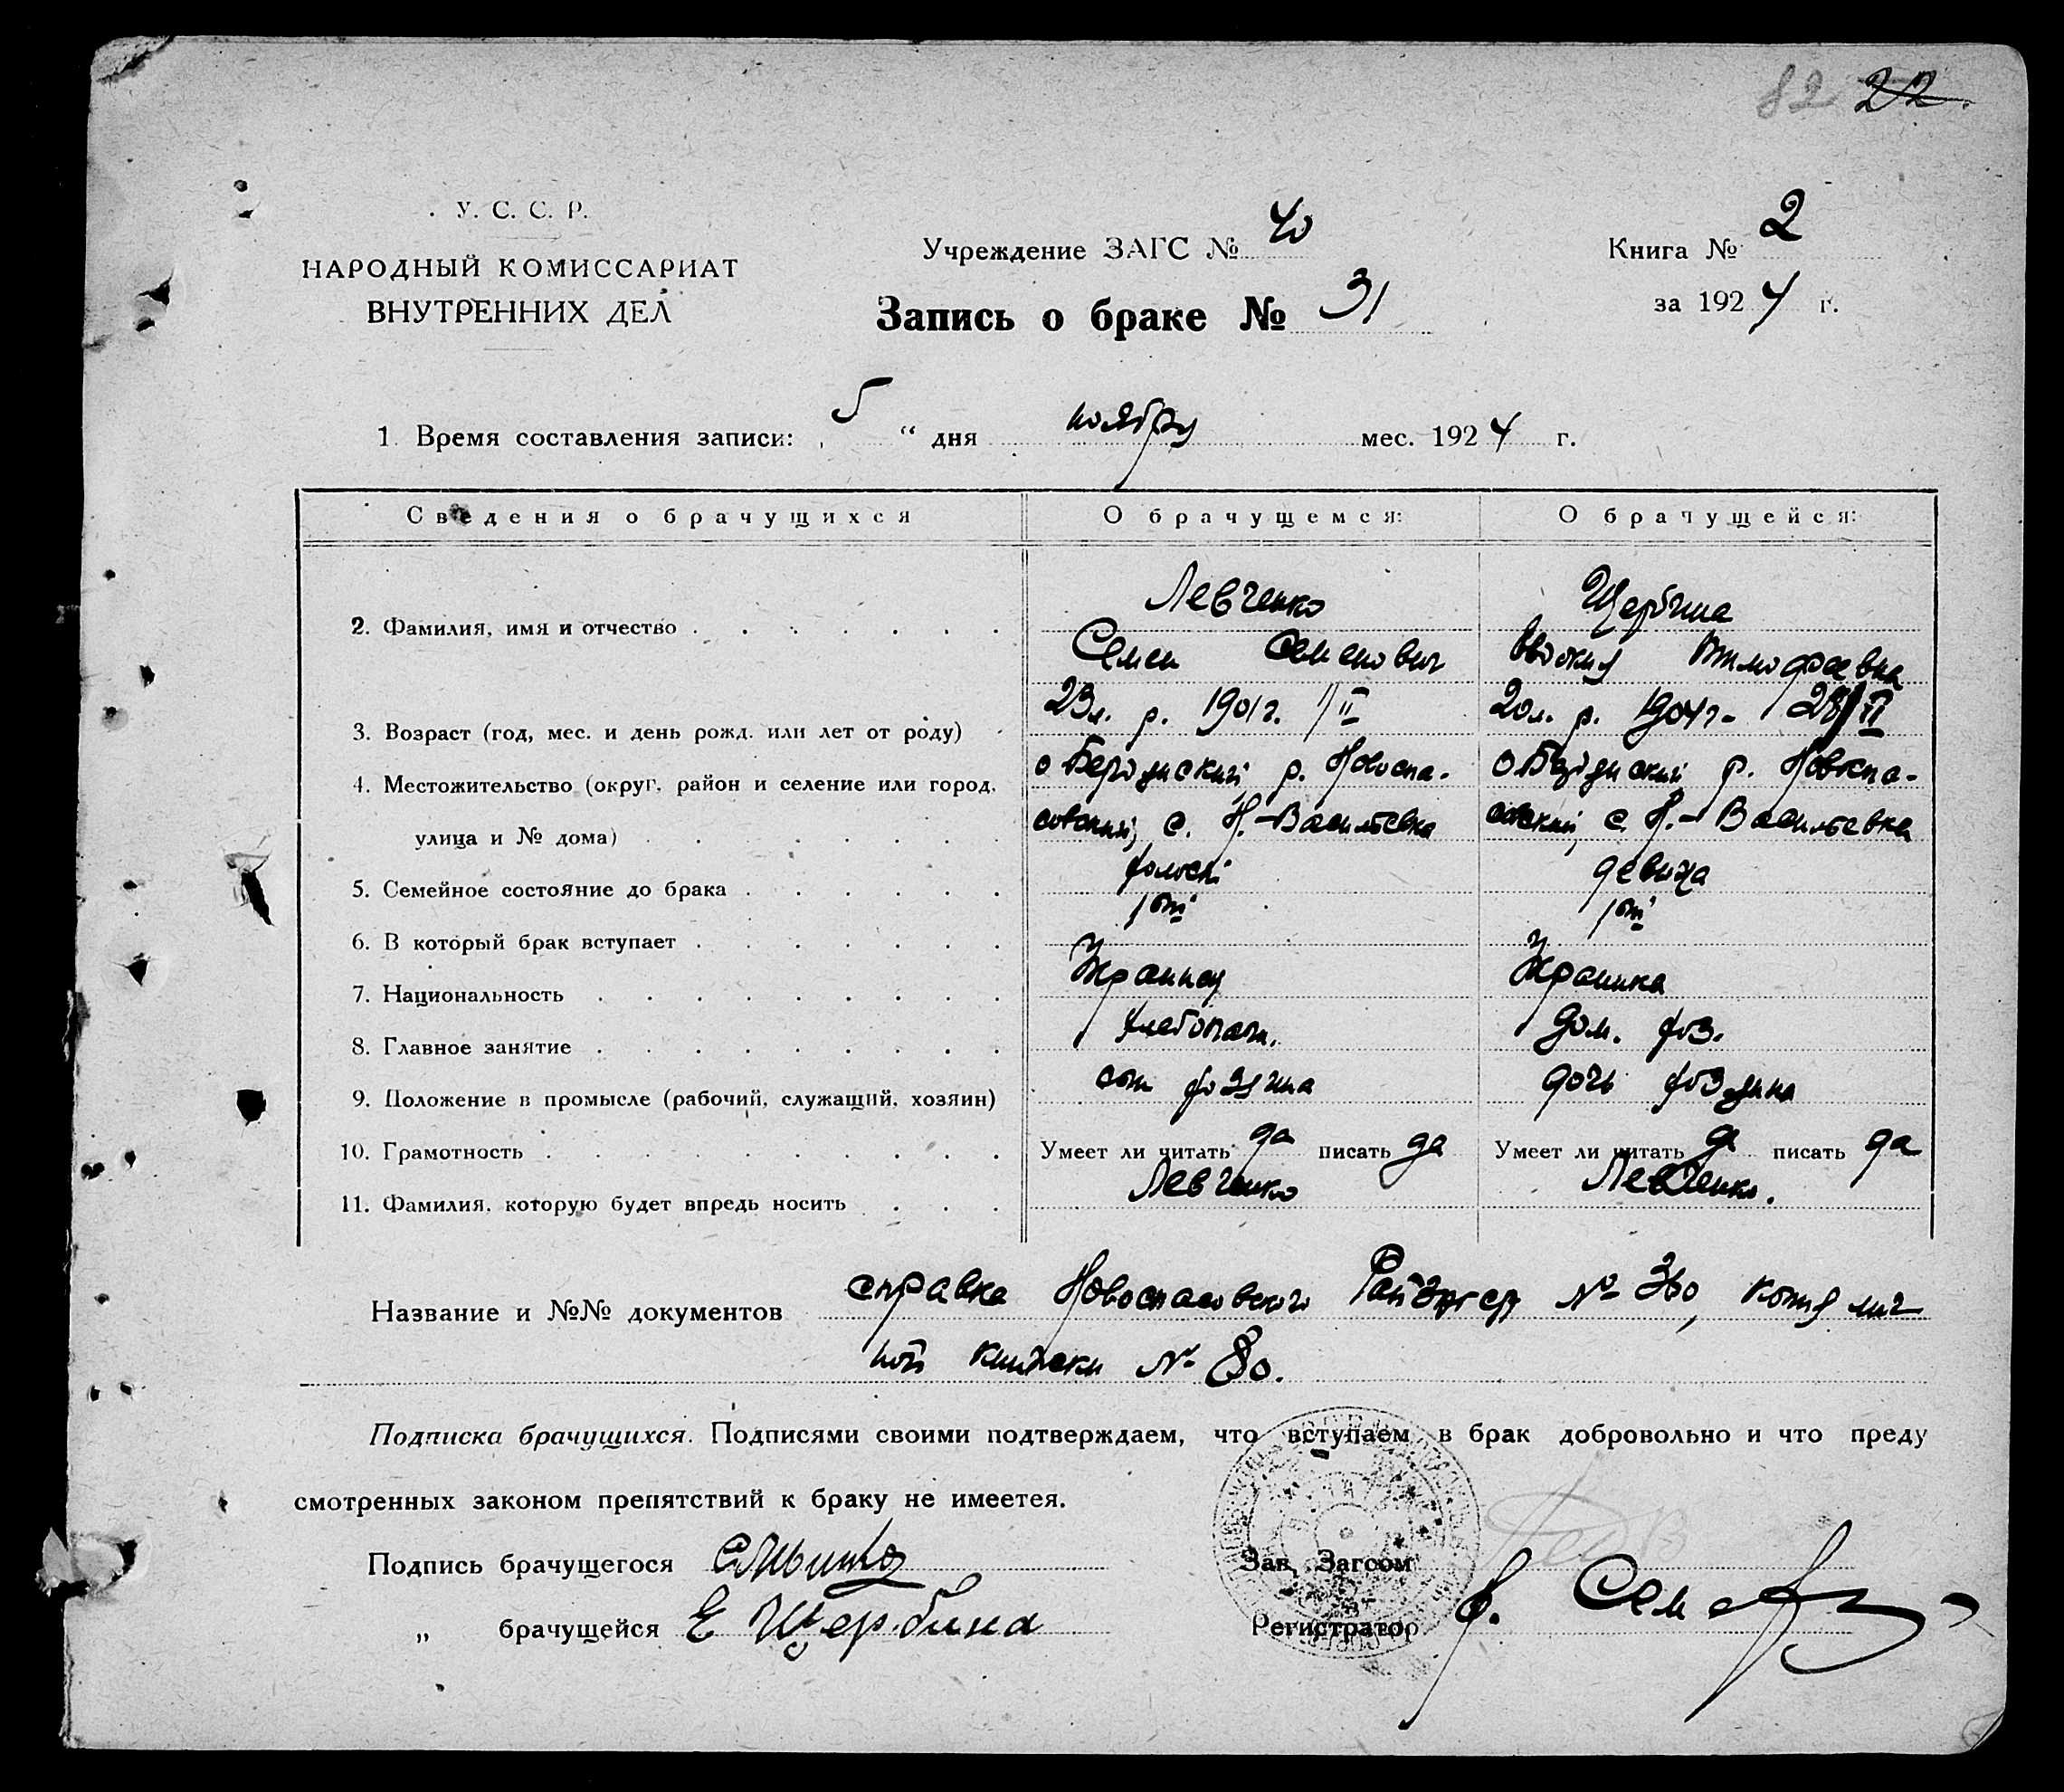 82 22.
У. С. С. Р.
НАРОДНЫЙ КОМИССАРИАТ
ВНУТРЕННИХ ДЕЛ
Учреждение ЗАГС № 40
Книга № 2
Запись о браке № 31
за 1924 г.
1. Время составления записи: 5 “ дня ноября мес. 1924 г.
Сведения о брачущихся О брачущемся: О брачущейся:
Левченко Щербина
2. Фамилия, имя и отчество Семен Семенович Тимофеевна
3. Возраст (год, мес. и день рожд. или лет от роду) 23 л. р. 1901 г. 1/II 20 л. р. 1904 г. 28/II
4. Местожительство (округ, район и селение или город, о Бердянский р. Новоспа- о Бердянский р. Новоспа-
улица и № дома) совский, с. Н.-Васильевка совский, с. Н.-Васильевка
5. Семейное состояние до брака холост девица
6. В который брак вступает 1ый 1ый
7. Национальность Украинец Украинка
8. Главное занятие хлебопаш. дом. хоз.
9. Положение в промысле (рабочий, служащий, хозяин) сын хозяина дочь хозяина
10. Грамотность Умеет ли читать да писать да Умеет ли читать да писать да
11. Фамилия, которую будет впредь носить Левченко Левченко.
Название и №№ документов справка Новоспасовского № 360, копия лич
ной книжки № 80.
Подписка брачущихся. Подписями своими подтверждаем, что вступаем в брак добровольно и что преду
смотренных законом препятствий к браку не имеетея.
Подпись брачущегося
Зав. Загсом
„ брачущейся Е Щербина
Регистратор